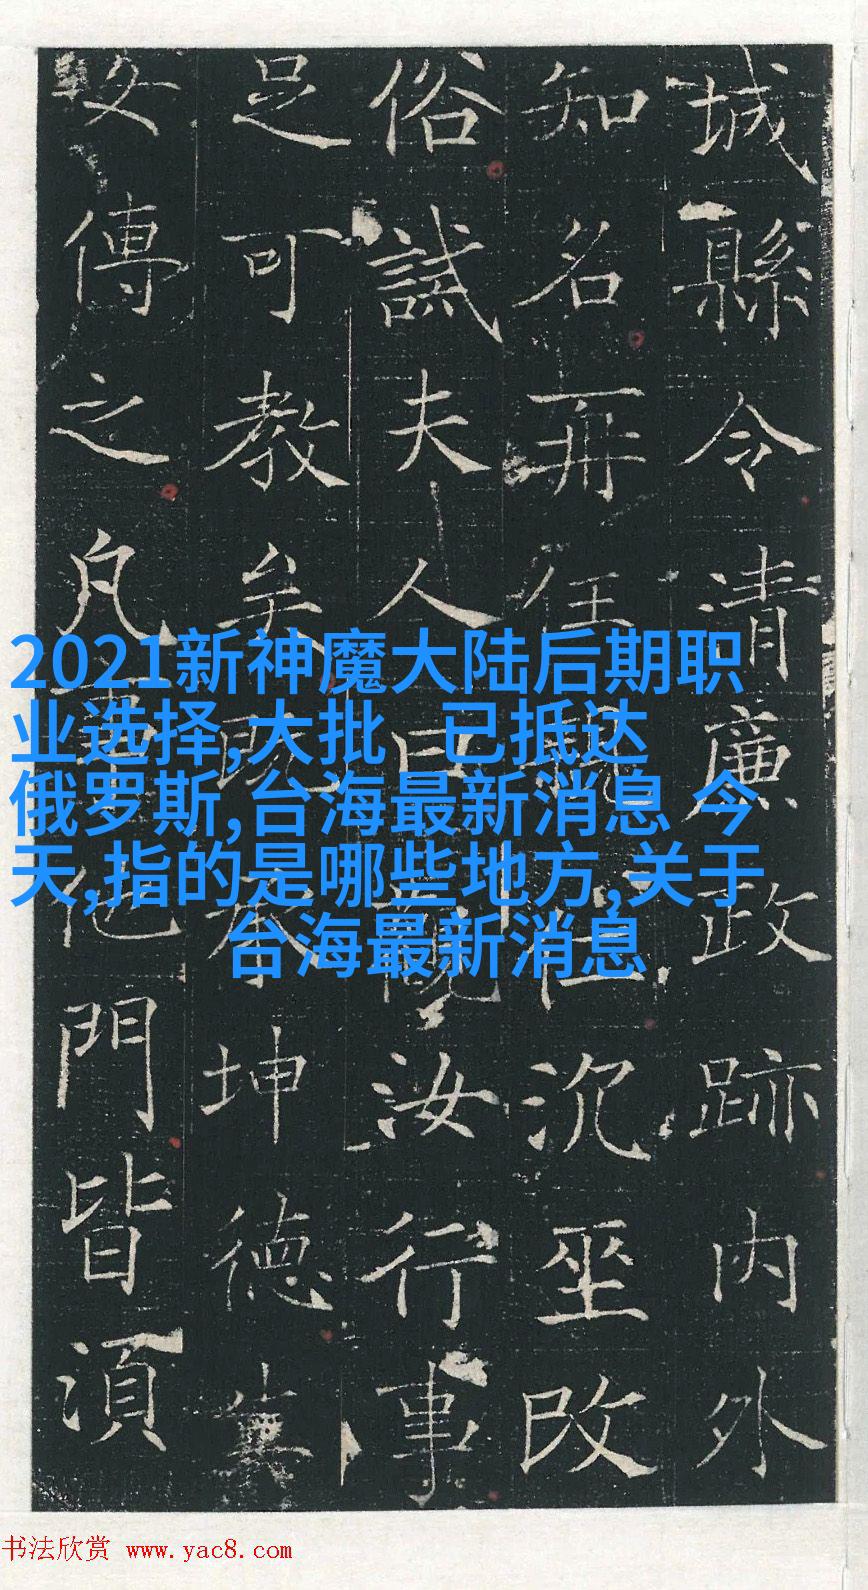 城縣令清廉政跡内外
知名再任沉坐改
俗誠夫人曰汝行事
足可教矣既承坤德
傳之凡事他門皆須
2021新神魔大陆后期职
业选择,大批 已抵达
俄罗斯,台海最新消息 今
天,指的是哪些地方,关于
台海最新消息
书法欣赏 www.yac8.com